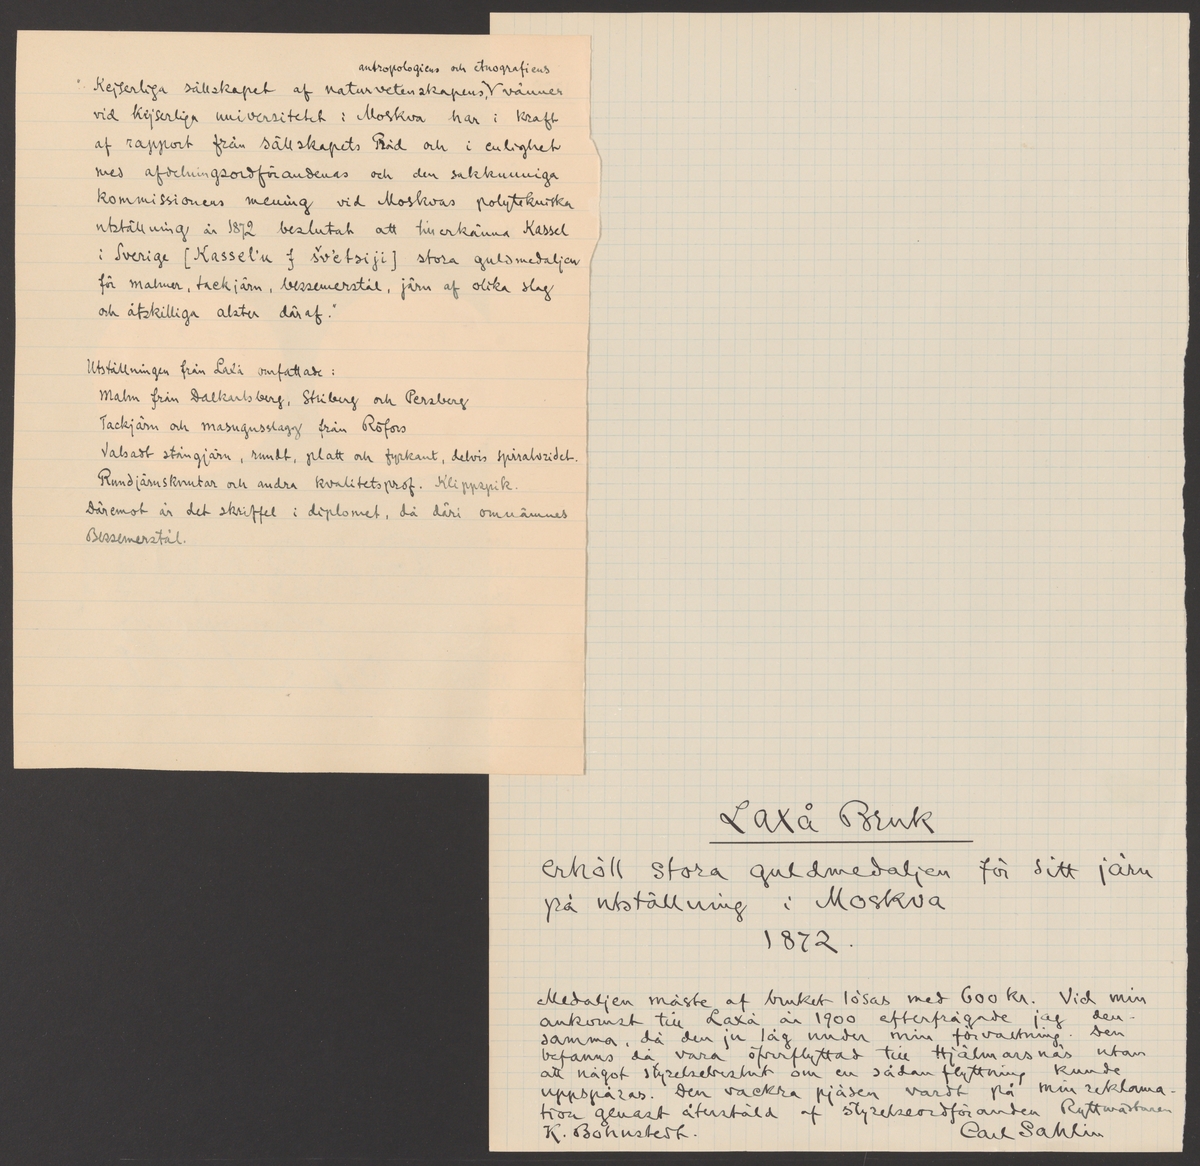 antropologiens och etnografiens
"Kejserliga sällskapet af naturvetenskapens, V vänner
vid Kejserliga universitetet i Moskva har i kraft
af rapport från sällskapets Råd och i enlighet
med afdelningsordförandenas och den sakkunniga
kommissionens mening vid Moskvas polytekniska
utställning år 1872 beslutat att tillerkänna Kassel
i Sverige [Kassel'u švetsiji] stora guldmedaljen
för malmer, tackjärn, bessemerstål, järn af olika slag
och åtskilliga alster däraf."
Utställningen från Laxå omfattade:
Malm från Dalkarlsberg, Striberg och Persberg
Tackjärn och masugnsslagg från Röfors
Valsadt stångjärn, rundt, platt och fyrkant, delvis spiralvridet.
Rundjärnsknutar och andra kvalitetsprof. Klippspik.
Däremot är det skriffel i diplomet, då däri omnämnes
Bessemerstål.
Laxå Bruk
erhöll stora guldmedaljen för sitt järn
på utställning i Moskva
1872.
Medaljen måste af bruket lösas med 600 kr. Vid min
ankomst till Laxå år 1900 efterfrågade jag den-
samma, då den ju låg under min förvaltning. Den
befanns då vara öfverflyttad till Hjälmarsnäs utan
att något styrelsebeslut om en sådan flyttning kunde
uppspåras. Den vackra pjäsen vardt på min reklama-
tion genast återstäld af styrelseordföranden Ryttmästaren
K. Bohnstedt. Carl Sahlin